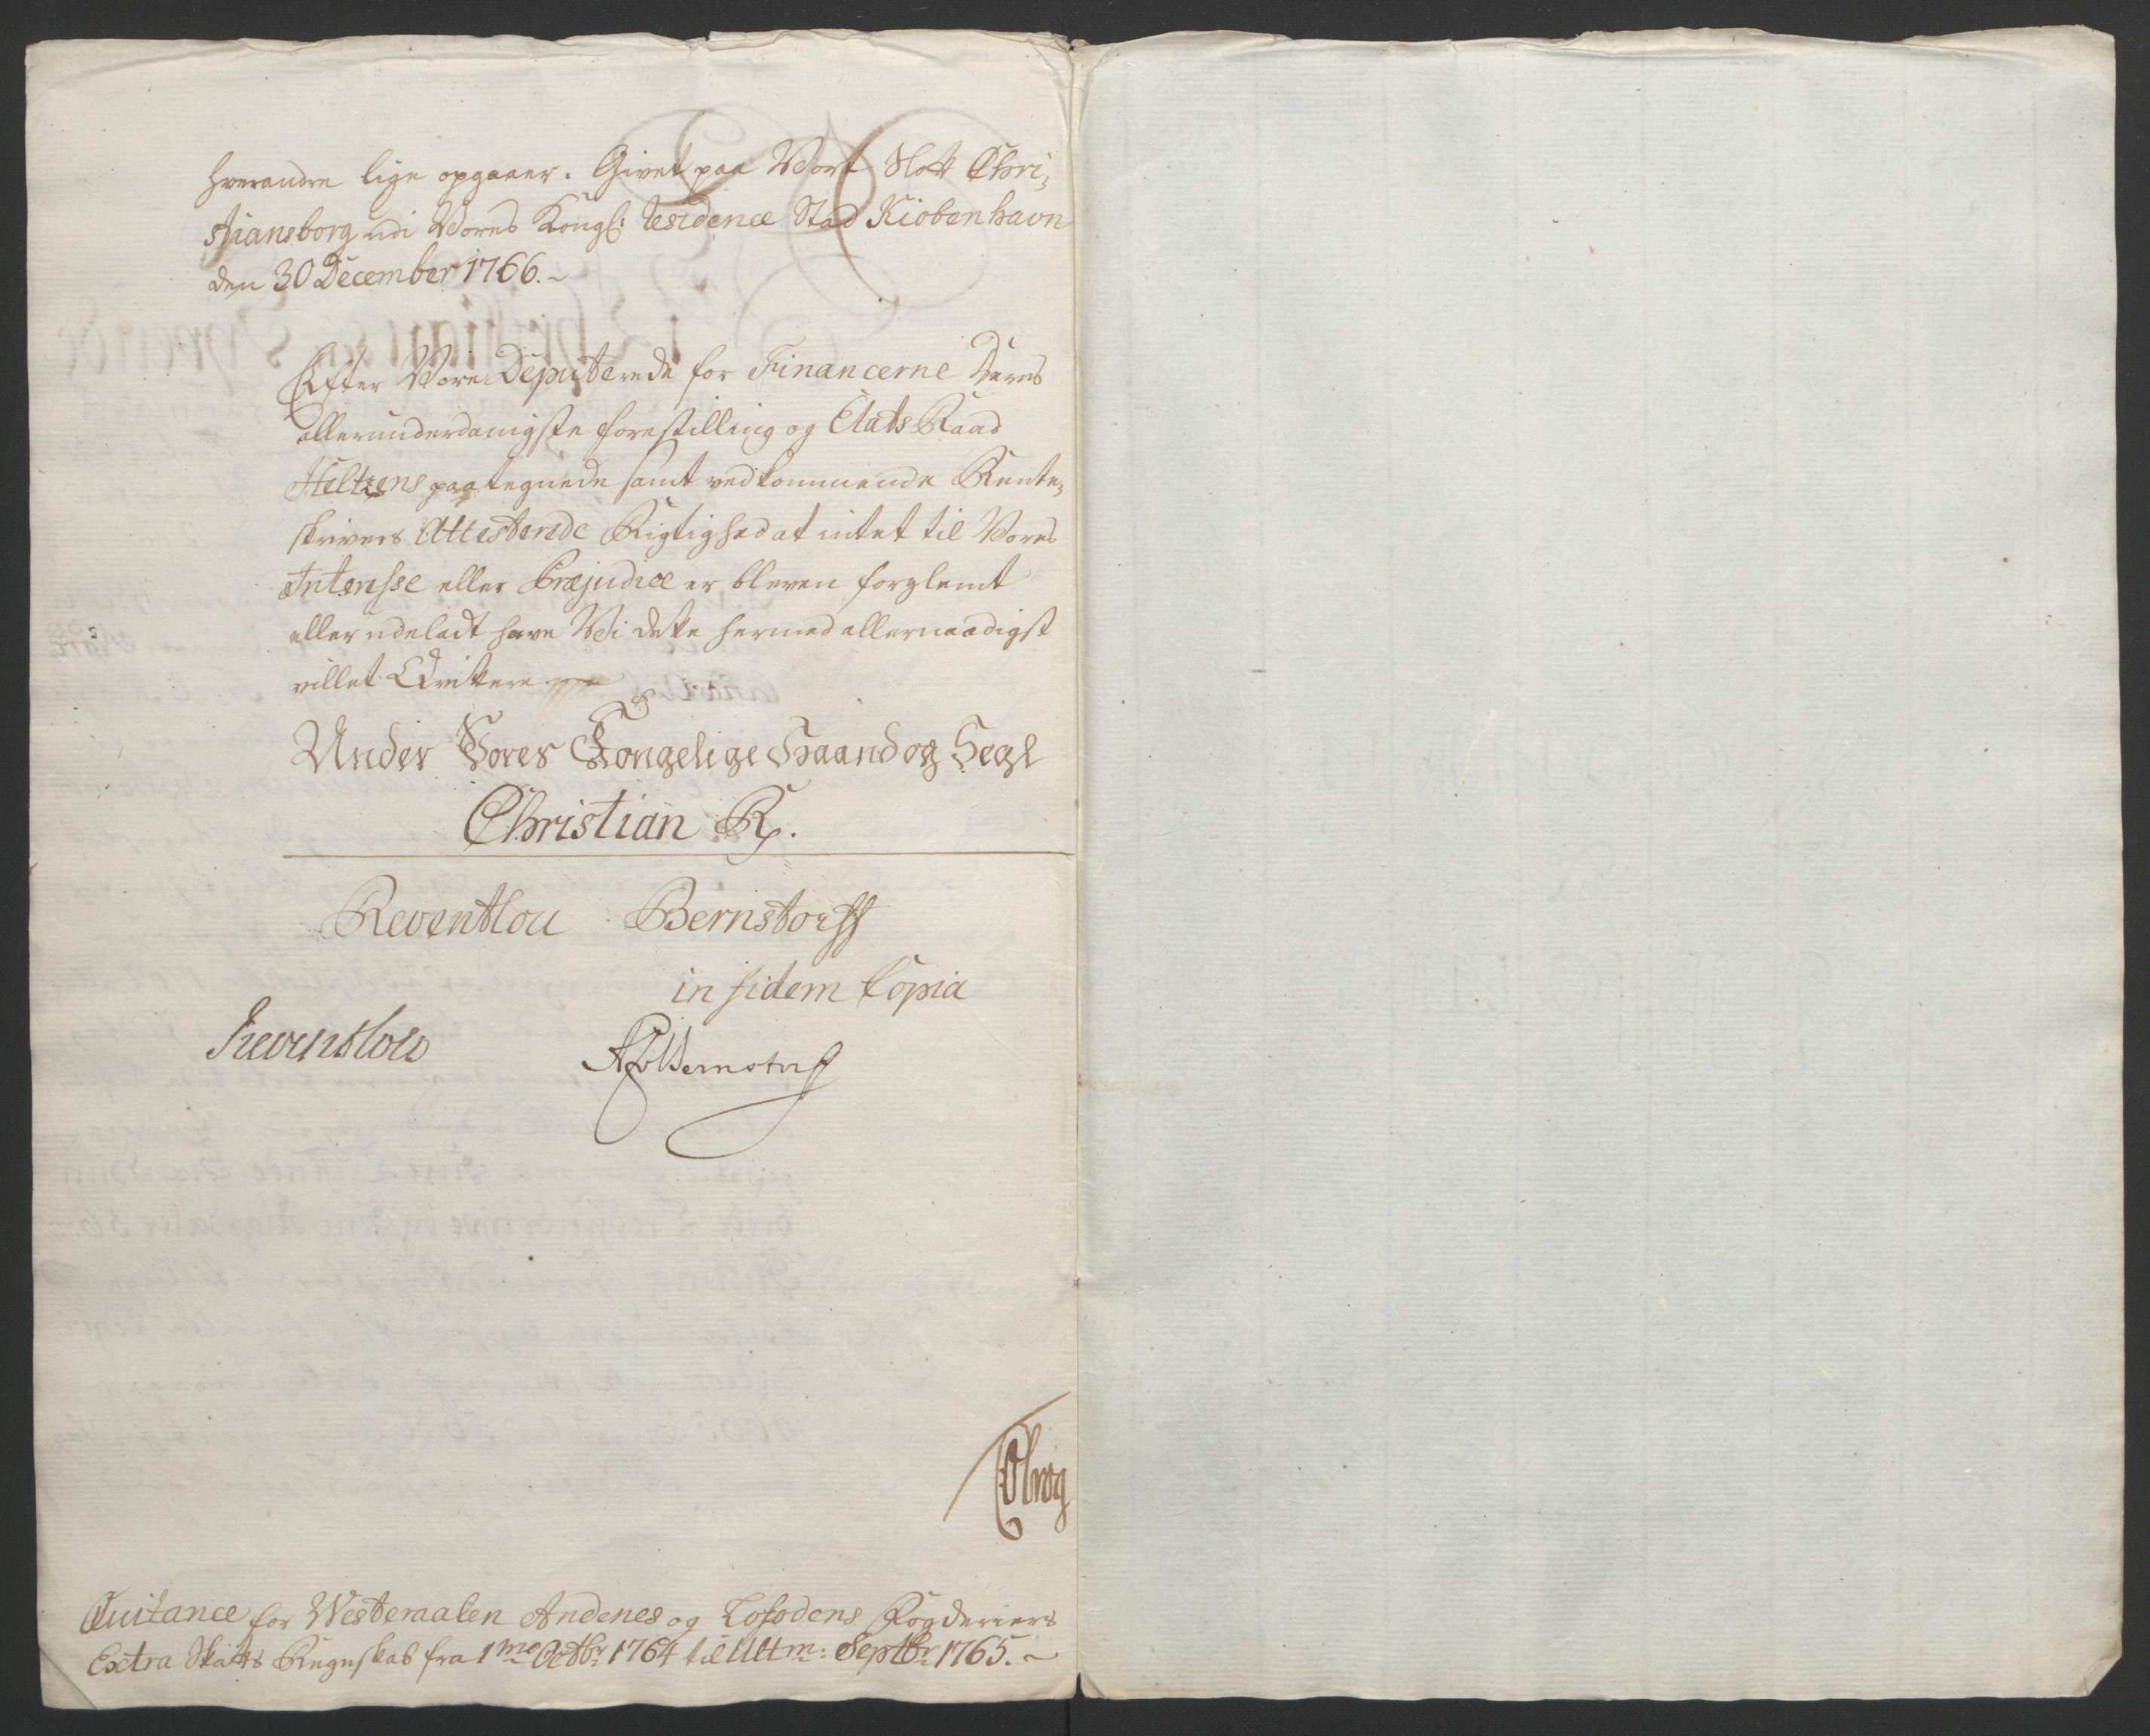 hverandre lige opgaaer. Givet paa Vort Slott Chri-
stiansborg udi Vores Kongl: Residence Stad Kiobenhavn
den 30 December 1766.
Efter Vore Deputerede for Financerne Deres
allerunderdanigste forestilling og Etats Raad
Heltzens paategnede samt vedkommende Rente-
skrivers Attesterede Rigtighed at intet til Vores
Interesse eller Præjudice er bleven forglemt
eller udeladt have Vi dette hermed allernaadigst
villet Qvittere
Under Vores Kongelige Haand og Segl
Christian R.
Reventlou Bernstorff
in fidem Copia
Reventlow Bernstorff
Qvitance for Westeraalen Andenes og Lofodens Fogderiers
Extra Skatts Regnskab fra 1me Octbr: 1764 til Ultm: Septbr: 1765.